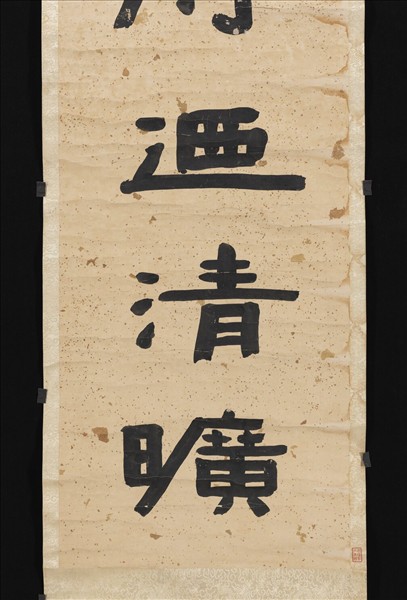 迺
清
曠